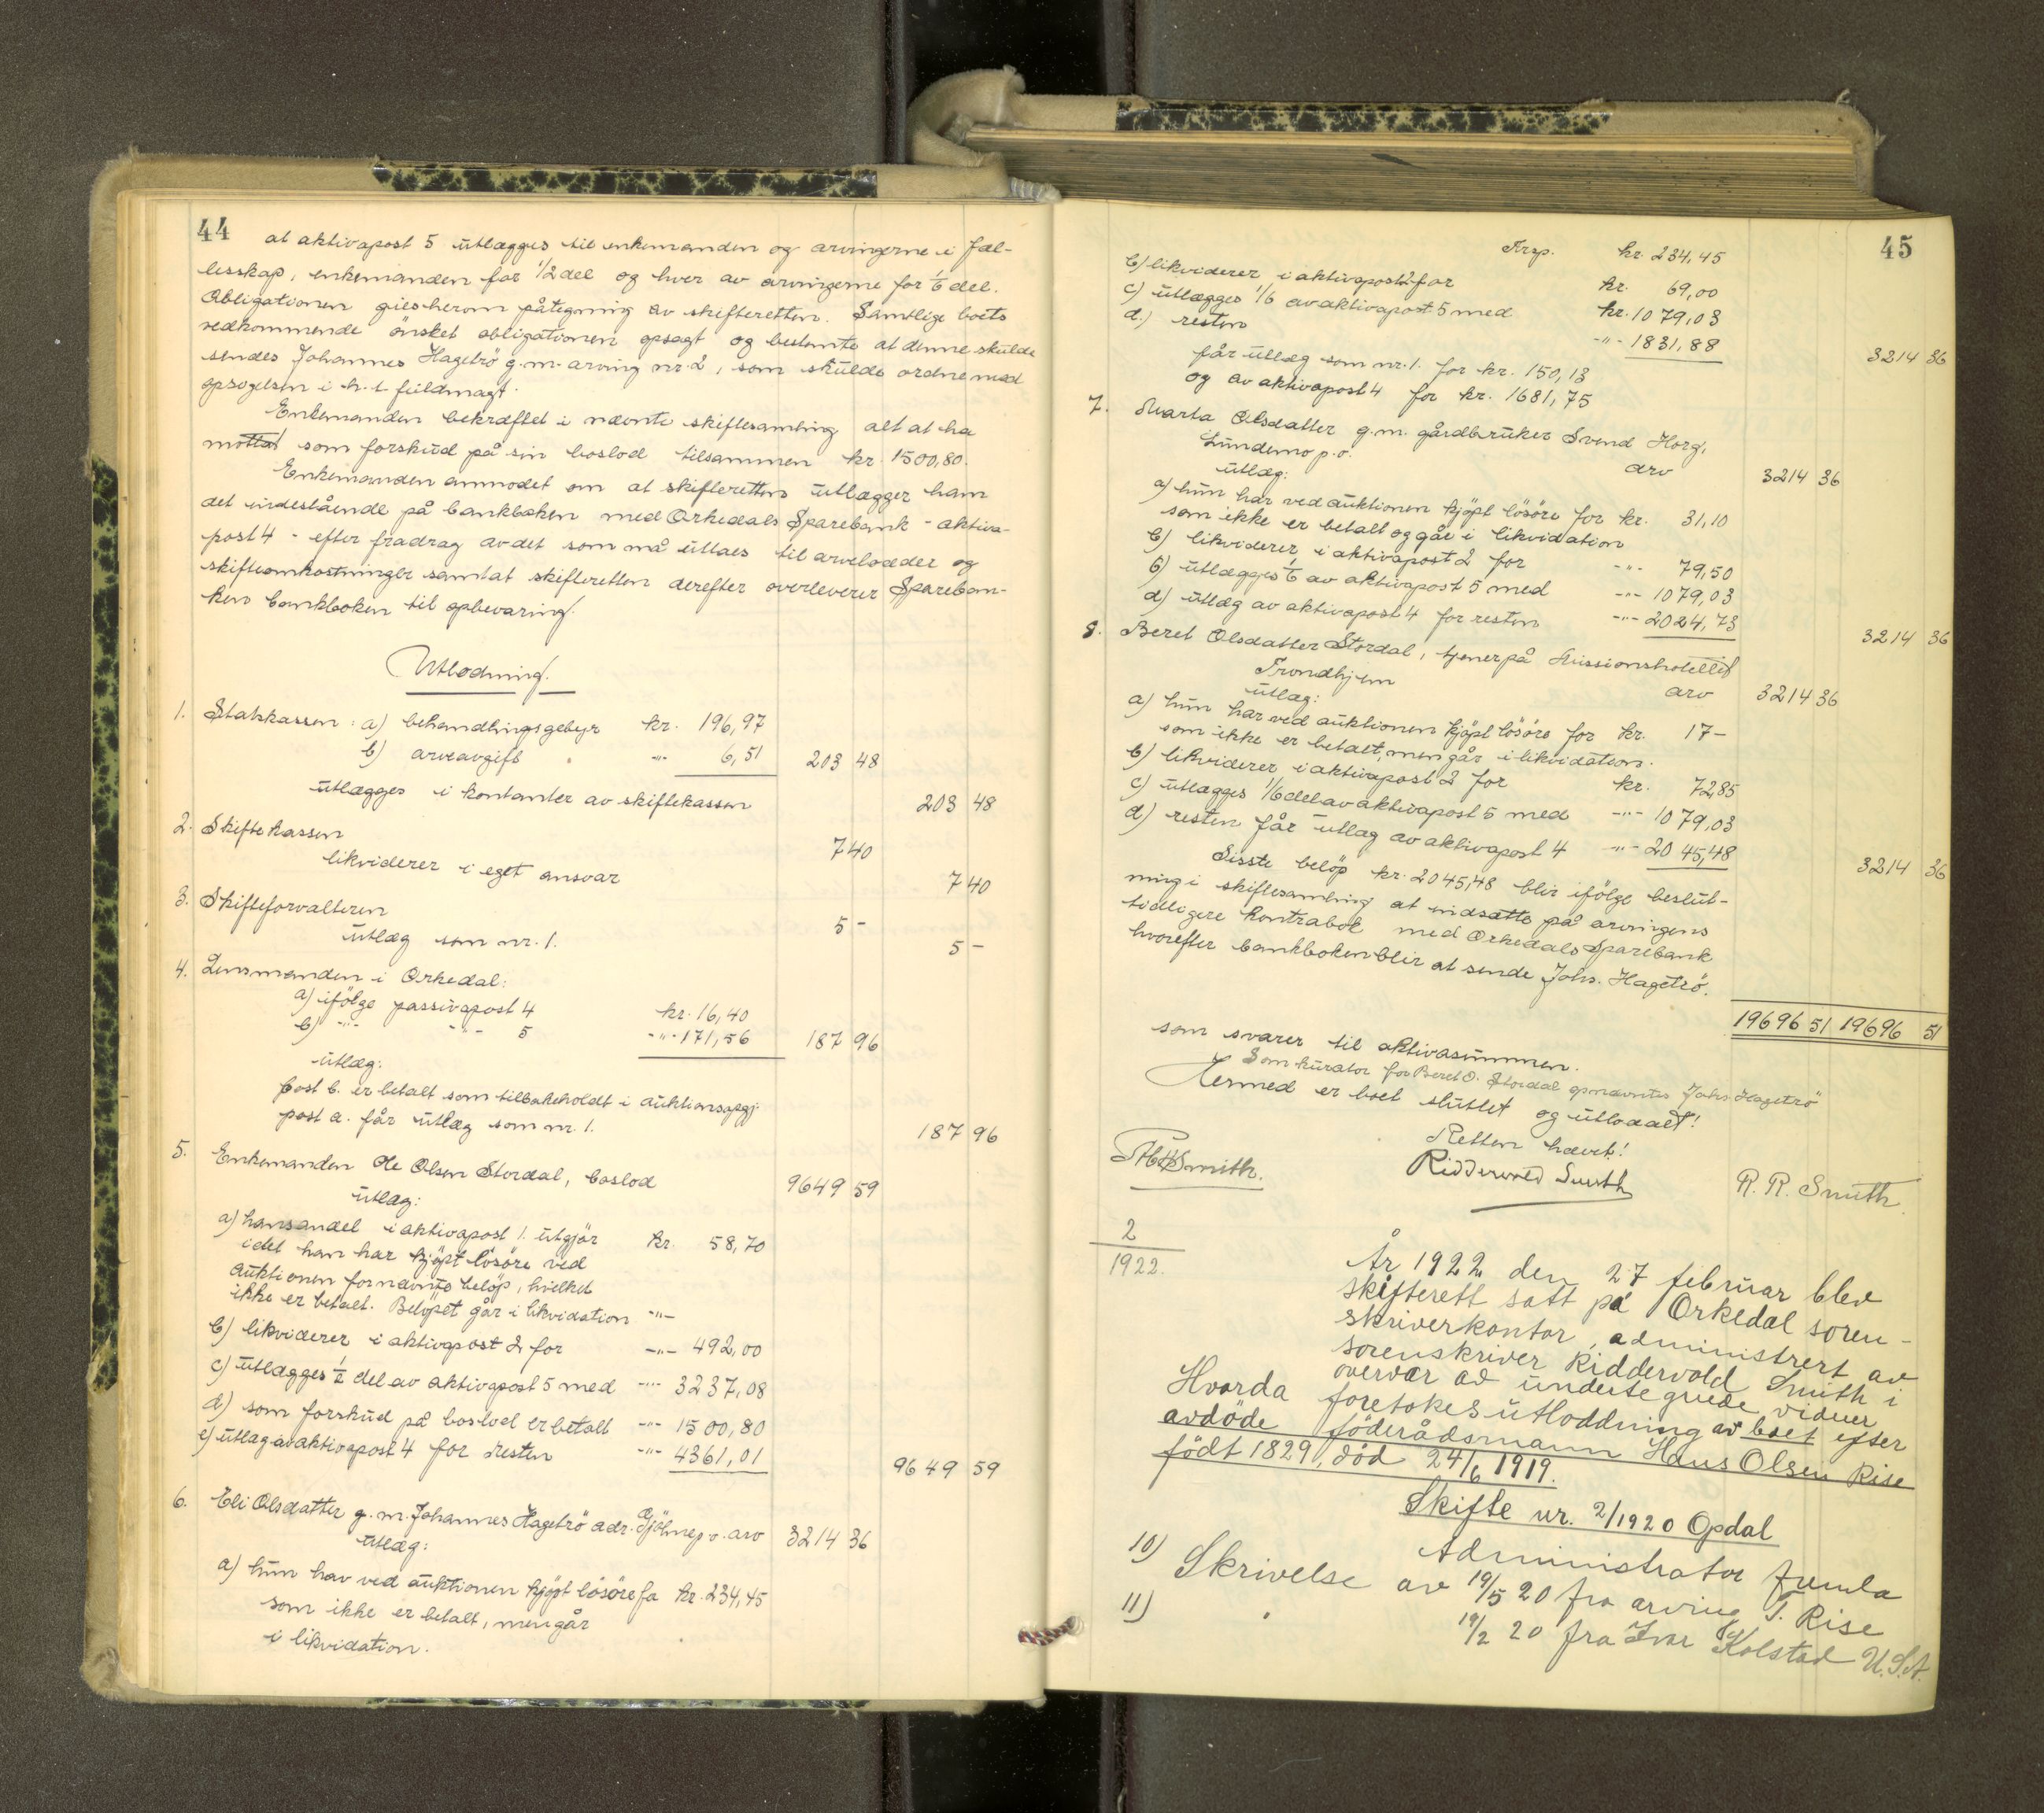 44
at aktivapost 5 utlægges til enkemanden og arvingerne i fæl-
lesskap, enkemanden for 1/2 del og hver av arvingerne for 1/6 del.
Obligationen gies herom påtegning av skifteretten. Samtlige boets
vedkommende ønsket obligationen opsagt og bestemte at denne skulde
sendes Johannes Hagetrö g.m. arving nr. 2, som skulde ordne med
opsigelsen i h.t. fuldmagt.
Enkemanden bekræftet i nævnte skiftesamling alt at ha
mottat som forskud på sin boslod tilsammen kr. 1500,80.
Enkemanden anmodet om at skifteretten utlægger ham
det indestående på bankboken med Orkedals Sparebank - aktiva-
post 4 - efter fradrag av det som må uttaes til arvelodder og
skifteomkostninger samt at skifteretten derefter overleverer Spareban-
ken bankboken til opbevaring.
Utlodning.
1. Statskassen: a) behandlingsgebyr kr. 196,97
b) arveavgift -"- 6,51 203 48
utlægges i kontanter av skiftekassen 203 48
2. Skiftekassen 7 40
likviderer i eget ansvar 7 40
3. Skifteforvalteren 5 -
utlæg som nr. 1. 5 -
4. Lensmanden i Orkedal:
a) ifölge passivapost 4 kr. 16,40
b) -"- -"- 5 -"- 171,56 187 96
utlæg:
post b. er betalt som tilbakeholdt i auktionsopgj.
post a. får utlæg som nr. 1. 187 96
5. Enkemanden Ole Olsen Stordal, boslod 9649 59
utlæg:
a) hans andel i aktivapost 1. utgjör kr. 58,70
idet han har kjöpt lösöre ved
auktionen fornævnte belöp, hvilket
ikke er betalt. Belöpet går i likvidation -"-
b) likviderer i aktivapost 2 for -"- 492,00
c) utlægges 1/2 del av aktivapost 5 med -"- 3237,08
d) som forskud på boslod er betalt -"- 1500,80
e) utlæg av aktivapost 4 for resten -"- 4361,01
9649 59
6. Eli Olsdatter g.m. Johannes Hagetrö adr. Gjölme p.o. arv 3214 36
utlæg:
a) hun har ved auktionen kjöpt lösöre fo kr. 234,45
som ikke er betalt, men går
i likvidation.
45
Trsp. kr. 234,45
b) likviderer i aktivapost 2 for kr. 69,00
c) utlægges 1/6 av aktivapost 5 med kr. 1079,03
d.) resten -"- 1831,88
3214 36
får utlæg som nr. 1. for kr. 150,13
og av aktivapost 4 for kr. 1681,75
7. Marta Olsdatter g.m. gårdbruker Svend Horg,
Lundemo p.o. arv 3214 36
utlæg:
a) hun har ved auktionen kjöpt lösöre for kr. 31,10
som ikke er betalt og går i likvidation
b) likviderer i aktivapost 2 for -"- 79,50
c) utlægges 1/6 av aktivapost 5 med -"- 1079,03
d) utlæg av aktivapost 4 for resten -"- 2024,73
3214 36
8. Beret Olsdatter Stordal, tjener på Missionshotellet
Trondhjem arv 3214 36
utlæg:
a) hun har ved auktionen kjöpt lösöre for kr. 17-
som ikke er betalt, men går i likvidation.
b) likviderer i aktivapost 2 for kr. 72,85
c) utlægges 1/6 del av aktivapost 5 med -"- 1079,03
d) resten får utlæg av aktivapost 4 -"- 2045,48
3214 36
Siste belöp kr. 2045,48 blir ifölge beslut-
ning i skiftesamling at indsætte på arvingens
tidligere kontrabok med Orkedals Sparebank
hvorefter bankboken blir at sende Johs. Hagetrö.
19696 51 19696 51
som svarer til aktivasummen.
Som kurator for Beret O. Stordal opnævntes Johs. Hagetrö
Hermed er boet sluttet og utloddet!
Retten hævet!
Smith. Ridderwold Smith R. R. Smith.
2
1922.
År 1922 den 27 februar blev
skifterett satt på Orkedal soren-
skriverkontor, administrert av
sorenskriver Riddervold Smith i
overvær av undertegnede vidner
Hvorda foretokes utloddning av boet efter
avdöde föderådsmann Hans Olsen Rise
födt 1829, död 24/6 1919.
Skifte nr. 2/1920 Opdal
Administrator fremla
10) Skrivelse av 19/5 20 fra arving T. Rise
11) " 19/2 20 fra Ivar Kolstad U.S.A.